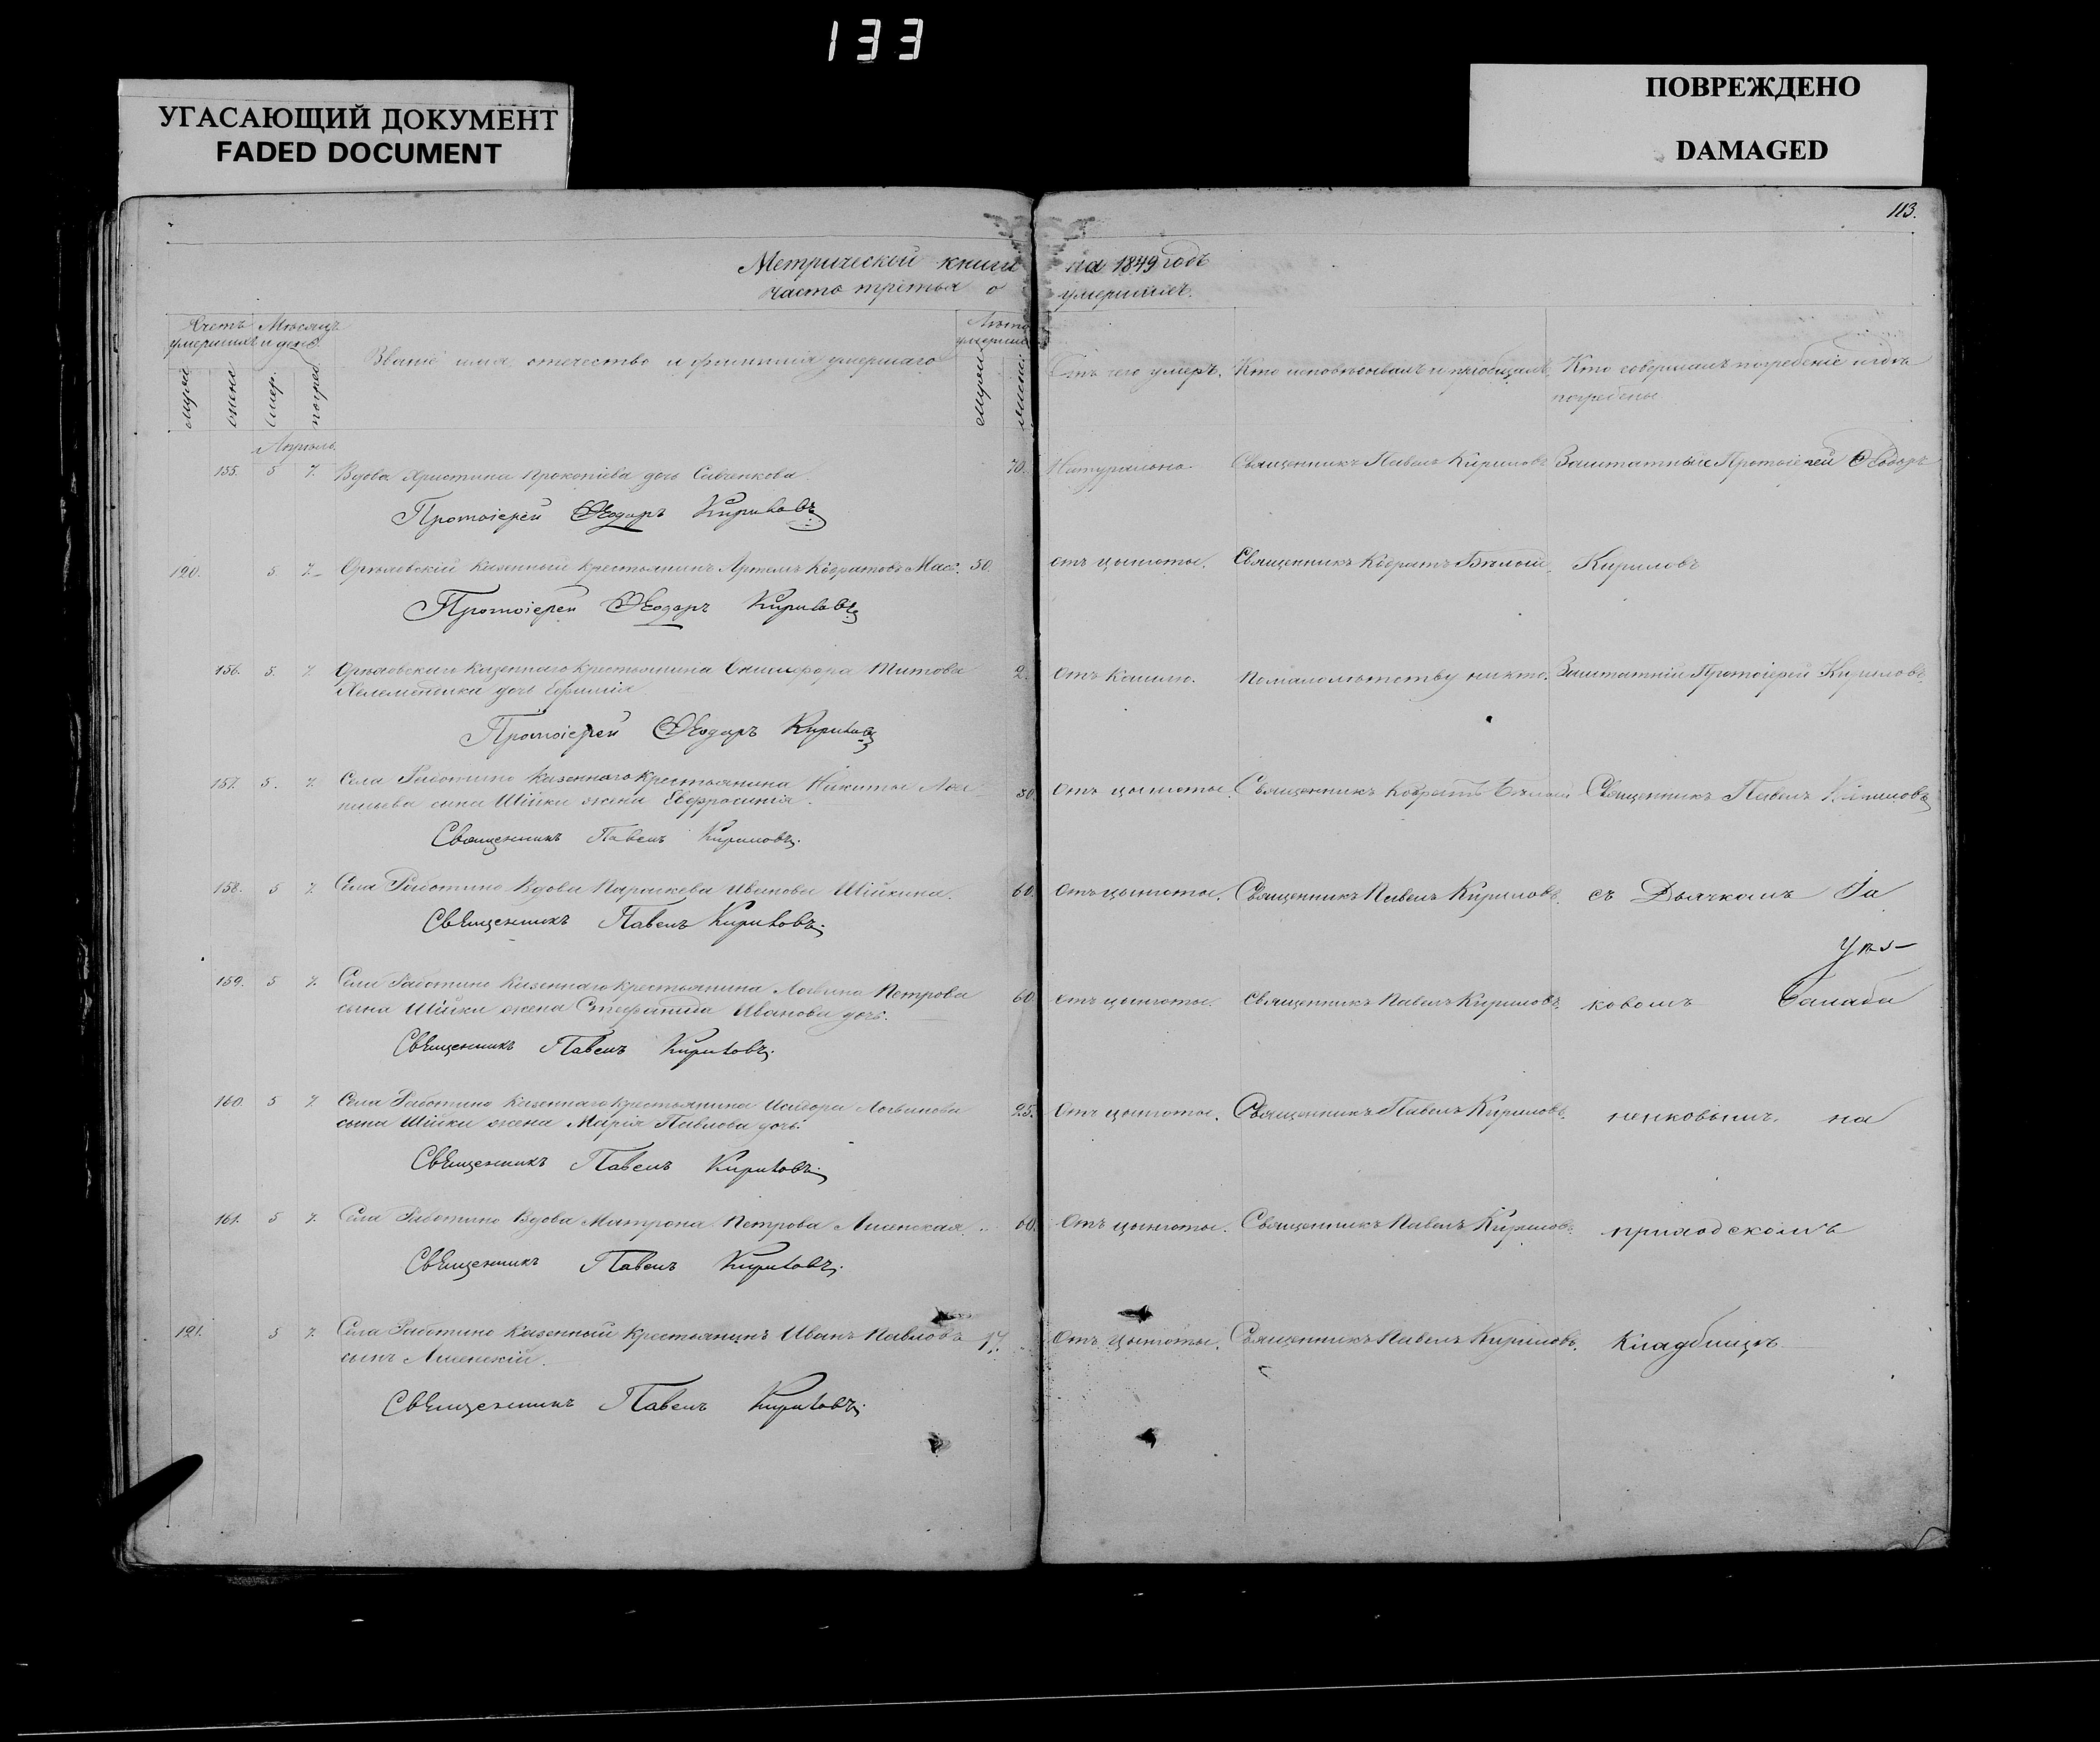 133
УГАСАЮЩИЙ ДОКУМЕНТ
FADED DOCUMENT
ПОВРЕЖДЕНО
DAMAGED
113.
Метрической книги на 1849 годъ
часть третья о умершихъ.
Счетъ умершихъ
Мѣсяцъ и день
Званіе имя, отечество и фамилія умершаго
Лѣта умерша
Отъ чего умеръ.
Кто исповѣдывалъ и пріобщалъ.
Кто совершалъ погребеніе и гдѣ погребены
Апрѣль
155. 5 7. Вдова Христина Прокопіева дочь Савченкова. 70. Натурально Священникъ Павелъ Кириловъ Заштатный Протоіерей Ѳеодоръ
Протоіерей Ѳеодоръ Кириловъ
120. 5. 7. Орѣховскій казенный крестьянинъ Артемъ Кодратовъ 50. отъ цынготы. Священникъ Кодратъ Бѣлый. Кириловъ
Протоіерей Ѳеодоръ Кириловъ
156. 5. 7. Орѣховскаго казеннаго крестьянина Никифора Титова 2. Отъ кашлю. По малолѣтству никто. Заштатній Протоіерей Кириловъ.
дочь Ефимія.
Протоіерей Ѳеодоръ Кириловъ
157. 5. 7. Села Работино казеннаго крестьянина Никиты 50. Отъ цынготы. Священникъ Кодратъ Бѣлый Священникъ Павелъ Кириловъ
сына Шійки жена Евфросинія.
Священникъ Павелъ Кириловъ.
158. 5 7. Села Работино Вдова Параскева Иванова Шійкина. 60. Отъ цынготы. Священникъ Павелъ Кириловъ. съ Дьячкомъ
Священникъ Павелъ Кириловъ.
159. 5 7. Села Работино казеннаго крестьянина Логвина Петрова 60. Отъ цынготы. Священникъ Павелъ Кириловъ.
сына Шійки жена Стефанида Иванова дочь.
Священникъ Павелъ Кириловъ.
160. 5 7. Села Работино казеннаго крестьянина Исидора Логвинова 25. Отъ цынготы. Священникъ Павелъ Кириловъ. ненковымъ. на
сына Шійки жена Марія Павлова дочь.
Священникъ Павелъ Кириловъ.
161. 5 7. Села Работино Вдова Матрона Петрова Лисенская. 60. Отъ цынготы. Священникъ Павелъ Кириловъ. приходскомъ
Священникъ Павелъ Кириловъ.
121. 5 7. Села Работино казенный крестьянинъ Иванъ Павловъ 17. Отъ цынготы. Священникъ Павелъ Кириловъ. Кладбищѣ.
сынъ Лисенскій.
Священникъ Павелъ Кириловъ.